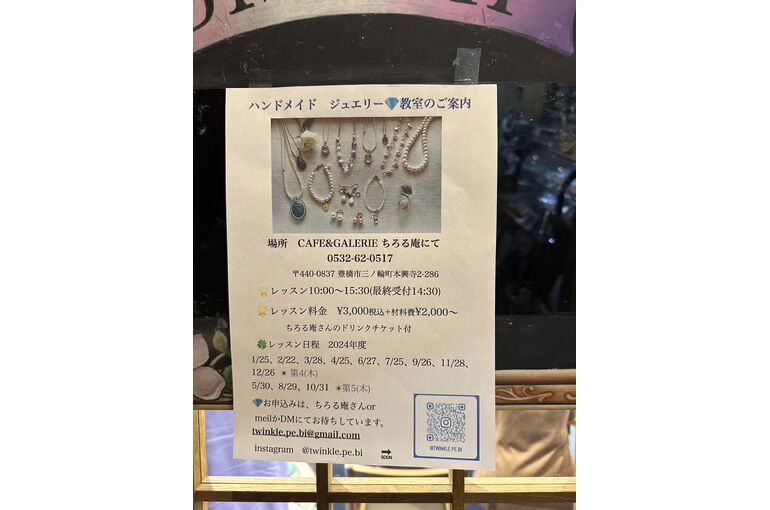 ハンドメイド ジュエリー💎教室のご案内
場所 CAFE&GALERIE ちろる庵にて
0532-62-0517
〒440-0837 豊橋市三ノ輪町本興寺2-286
レッスン10:00〜15:30(最終受付14:30)
レッスン料金 ¥3,000税込+材料費¥2,000〜
ちろる庵さんのドリンクチケット付
🍀レッスン日程 2024年度
1/25、2/22、3/28、4/25、6/27、7/25、9/26、11/28、
12/26 ✴第4(木)
5/30、8/29、10/31 ✴第5(木)
💎お申込みは、ちろる庵さんor
meilかDMにてお待ちしています。
twinkle.pe.bi@gmail.com
instagram @twinkle.pe.bi
SOON
@TWINKLE.PE.BI